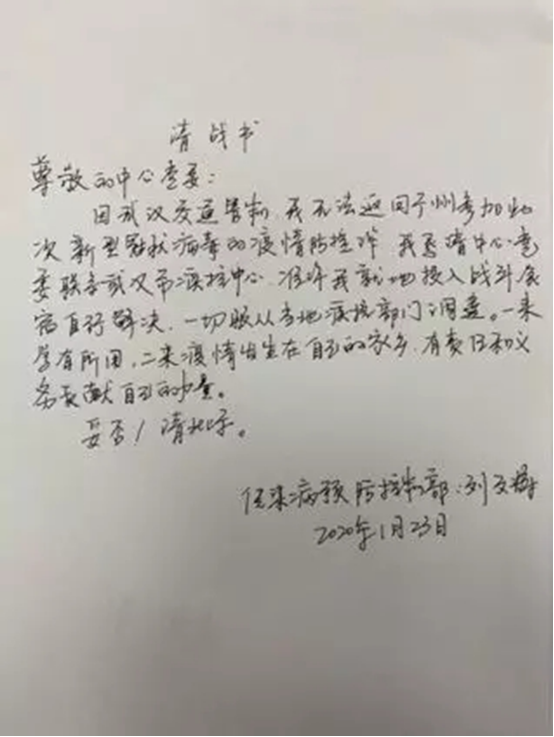 请战书
尊敬的中心党委：
因武汉交通管制，我无法返回广州参加此
次新型冠状病毒的疫情防控工作，我恳请中心党
委联系武汉市疾控中心，准许我就地投入战斗，食
宿自行解决，一切服从当地疾控部门调遣。一来
学有所用，二来疫情发生在自己的家乡，有责任和义
务贡献自己的力量。
妥否！请批示。
传染病预防控制部：刘文
2020年1月23日